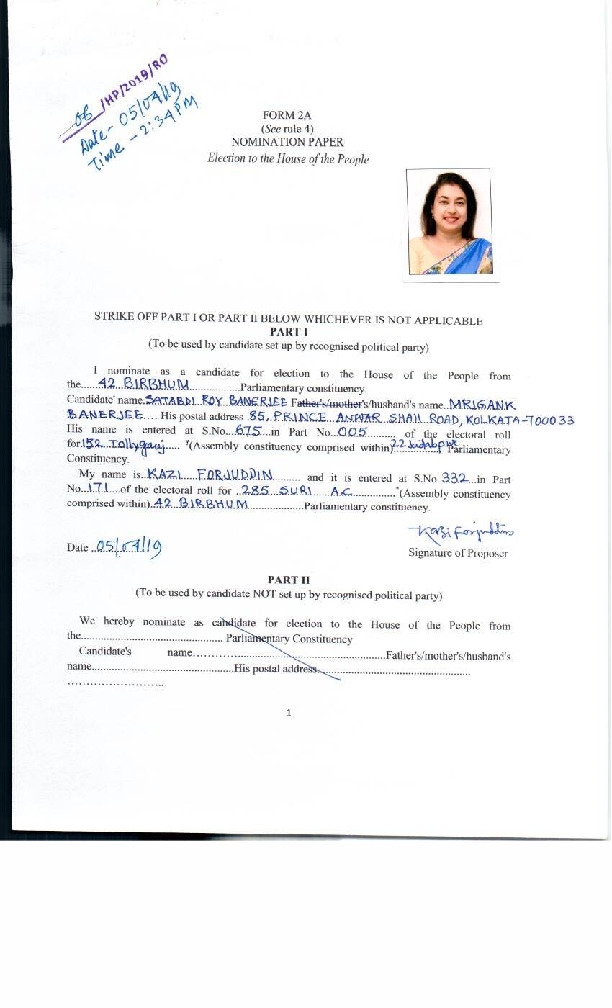 06 /HP/2019/RO
Date- 05/04/19
Time - 2:34PM
FORM 2A
(See rule 4)
NOMINATION PAPER
Election to the House of the People
STRIKE OFF PART I OR PART II BELOW WHICHEVER IS NOT APPLICABLE
PART I
(To be used by candidate set up by recognised political party)
I nominate as a candidate for election to the House of the People from
the.....42 BIRBHUM...............Parliamentary constituency.
Candidate' name.SATABDI ROY BANERJEE Father's/mother's/husband's name..MRIGANK
BANERJEE.... His postal address 85, PRINCE ANWAR SHAH ROAD, KOLKATA-700033
His name is entered at S.No...675...in Part No...005......... of the electoral roll
for.152 Tollyganj..... *(Assembly constituency comprised within) 22 Jadabpur Parliamentary
Constituency.
My name is..KAZI....FORJUDDIN......... and it is entered at S.No 332...in Part
No...171....of the electoral roll for ..285 SURI AC..............*(Assembly constituency
comprised within).42 BIRBHUM..................Parliamentary constituency.
Kazi Forjuddin
Date ..05/04/19
Signature of Proposer
PART II
(To be used by candidate NOT set up by recognised political party)
We hereby nominate as candidate for election to the House of the People from
the............................................. Parliamentary Constituency
Candidate's name.............................................................Father's/mother's/husband's
name.............................................His postal address.................................................
............................
1